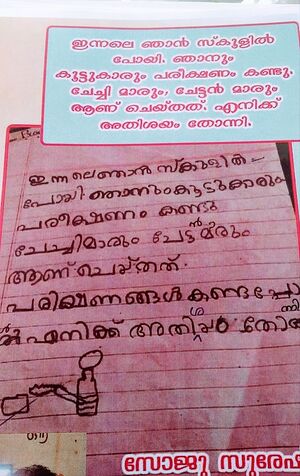 ഇന്നലെ ഞാൻ സ്കൂളിൽ
പോയി. ഞാനും
കൂട്ടുകാരും പരീക്ഷണം കണ്ടു.
ചേച്ചി മാരും, ചേട്ടൻ മാരും
ആണ് ചെയ്തത്. എനിക്ക്
അതിശയം തോന്നി.
ഇന്നലെ ഞാൻ സ്കൂളിൽ
പോയി ഞാനും കൂട്ടുകാരും
പരീക്ഷണം കണ്ടു
ചേച്ചിമാരും ചേട്ടൻമരും
ആണ് ചെയ്തത്.
പരിക്ഷണങ്ങൾ കണ്ട
എനിക്ക്
സോജു സുരേഷ്